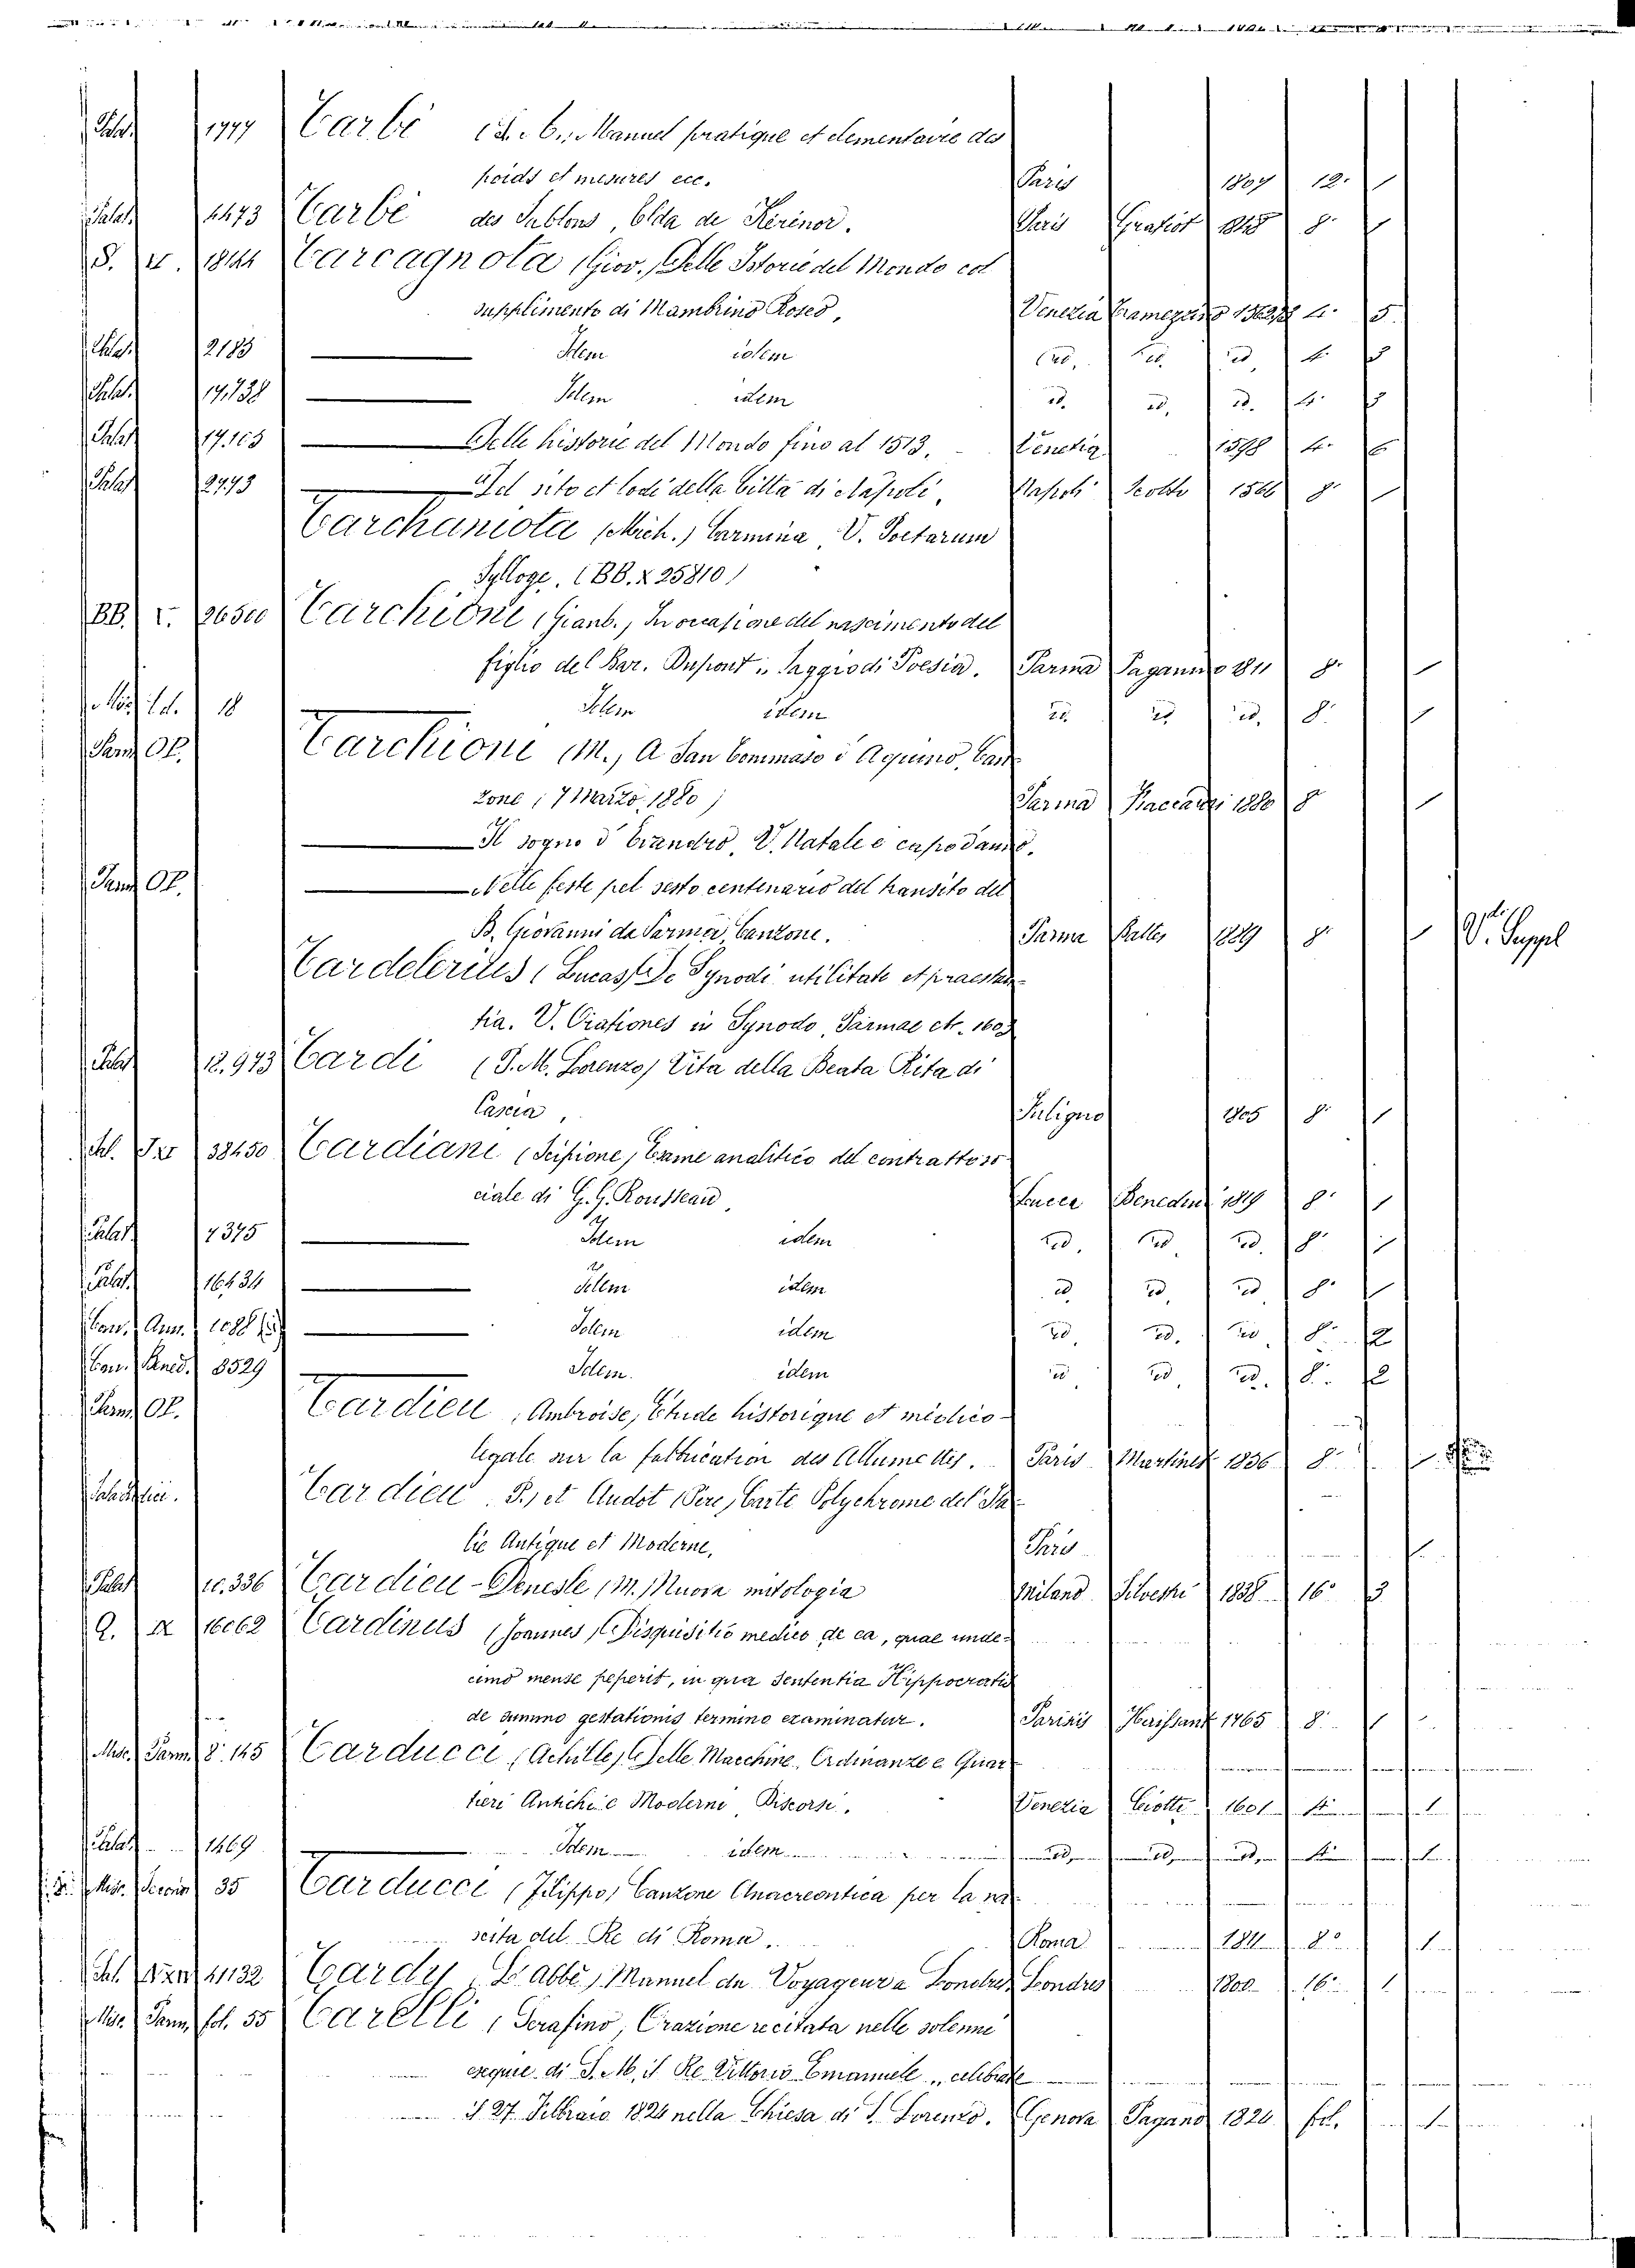 Palat. 1777 Tarbé (A. C.) Manuel pratique et élementaire des
poids et mesures ecc. Paris 1807 12. 1
Palat. Tarbé des Sablons, Elda de Kerinor. Paris Gratiot 8. 1
S. 18144 Tarcagnota (Giov.) Delle Istorie del Mondo col
supplimento di Mambrino Roseo, Venezia Tramezzino 4. 5.
Palat. 2183 Idem idem id. id. id. 4. 5
Palat. 17,738 Idem idem id. id. id. 4. 5
Palat. 17.165 Delle historie del Mondo fino al 1513. Venetia 1598 4. 6
Palat. Del sito et lodi della Città di Napoli, Napoli Scotto 1566 8. 1
Tarchaniota (Mich.) Carmina, V. Poetarum
Sylloge. (BB. X 25810)
BB. V. 26500 Tarchioni (Gianb.) In occasione del nascimento del
figlio del Bar. Dupont, Saggio di Poesia. Parma Paganino 1811 8. 1
18 Idem idem id. id. id. 8. 1
Parm OP. Tarchioni (M.) A San Tommaso d'Aquino, Can
zone (7 Marzo 1880) Parma Fiaccadori 1880 8 1
Il sogno d'Evandro, V. Natale e capodanno.
Parm OP. Nelle feste pel sesto centenario del transito del
B. Giovanni da Parma, Canzone. Parma 1889 8. 1 V. Suppl
Tardelerius (Lucas) De Synodi utilitate et praestan-
tia. V. Orationes in Synodo, Parmae etc. 1603
Palat 12.973 Tardi (P. M. Lorenzo) Vita della Beata Rita di
Cascia, Fuligno 1805 8. 1
38450 Tardiani (Scipione) Esame analitico del contratto so
ciale di G. G. Rousseau, Lucca Benedini 1819 8. 1
Palat. 7375 Idem idem id. id. id. 8. 1
Palat. 16434 Idem idem id. id. id. 8. 1
Idem idem id. id. id. 8. 2
3529 Idem. idem id id. id. 8. 2
Parm OP. Tardieu, Ambroise, Etude historique et médico-
légale sur la fabrication des Allumettes. Paris Martinet 1856 8. 1
Tardieu P. et Audot (Pere) Carte Polychrome de l'Ita
lie Antique et Moderne, Paris
Palat 10.336 Tardieu-Deneste (M.) Nuova mitologia Milano Silvestri 1838 16. 3
Q. IX 16062 Tardinus (Joannes) Disquisitio medico de ea, quae unde-
cimo mense peperit, in qua Sententia Hippocratis
de summo gestationis termino examinatur. Parisiis Haissant 1765 8. 1
Misc. Parm. 8. 145 Tarducci (Achille) Delle Macchine, Ordinanze e Quar
tieri Antichi e Moderni, Discorsi. Venezia Ciotti 1601 4. 1
Palat. 1469 Idem idem id. id. id. 4. 1
35 Tarducci (Filippo) Canzone Anacreontica per la na
scita del Re di Roma. Roma 1811 8° 1
41132 Tardy, L'abbé, Manuel du Voyageur a Londres, Londres 1800 16. 1
Misc. Parm. fol. 55 Tarelli, Serafino, Orazione recitata nelle solenni
esequie di S. M. il Re Vittorio Emanuele, celebrate
il 27 Febbraio 1824 nella Chiesa di S. Lorenzo. Genova Pagano 1824 fol. 1